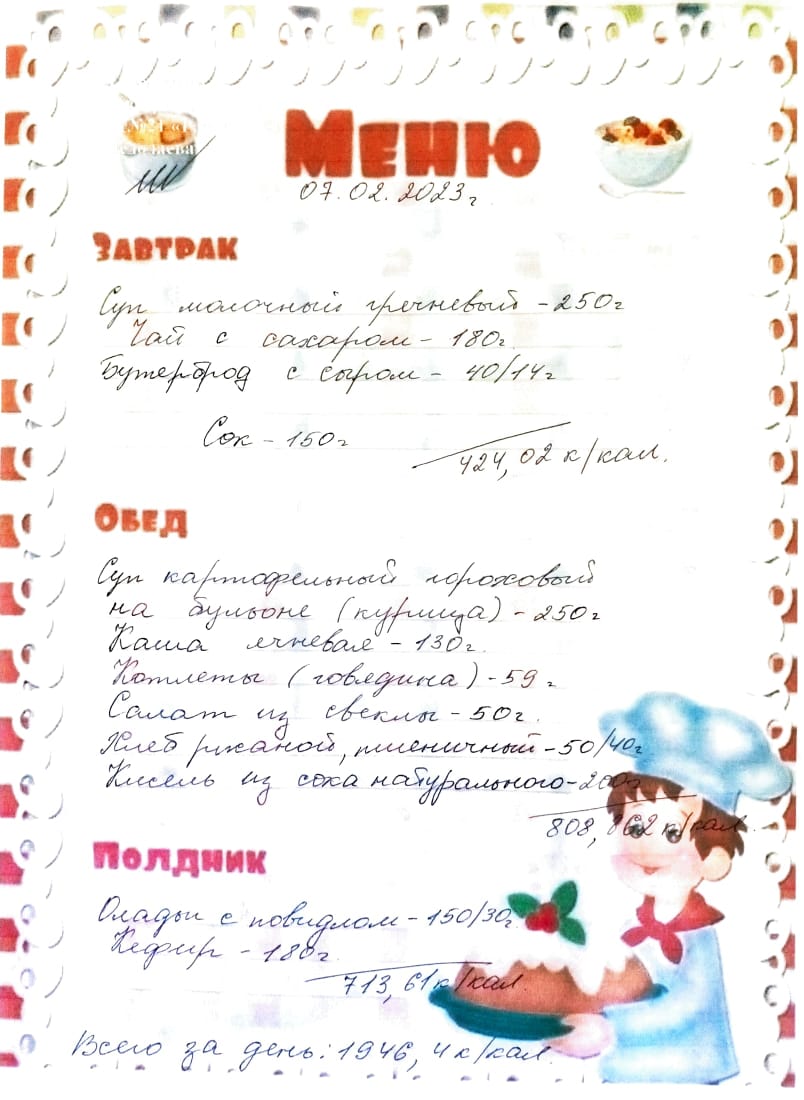 №21 «
Меню
07.02.2023г
Завтрак
Суп молочный гречневый - 250г
Чай с сахаром - 180г.
Бутерброд с сыром - 40/14г
Сок - 150г
424,02 к/кал.
Обед
Суп картофельный гороховый
на бульоне (курица) - 250г
Каша ячневая - 130г.
Котлеты (говядина) - 59г
Салат из свеклы - 50г.
Хлеб ржаной, пшеничный - 50/40г
Кисель из сока натурального - 200г
808,862 к/кал.
Полдник
Оладьи с повидлом - 150/30г.
Кефир - 180г.
713,61 к/кал.
Всего за день: 1946,4 к/кал.